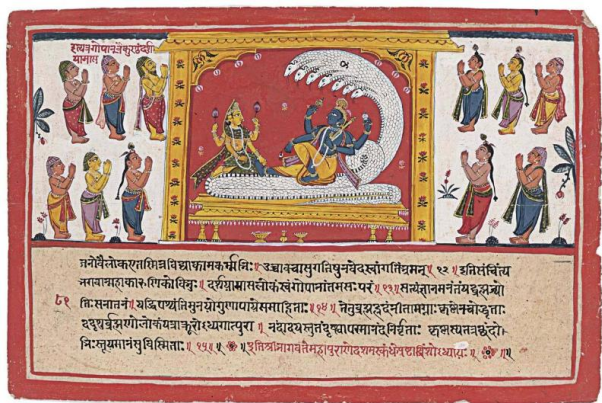 जनोवैलोकएतस्मिन्नविद्याकामकर्मभिः॥उच्चावचासुगतिषुनवेदस्वांगतिंभ्रमन्॥१२॥इतिसंचिंत्य
भगवान्महाकारुणिकोविभुः॥दर्शयामासलोकंस्वंगोपानांतमसःपरं॥१३॥सत्यंज्ञानमनंतंयद्ब्रह्मज्यो
तिःसनातनं॥यद्धिपश्यंतिमुनयोगुणापायेसमाहिताः॥१४॥तेतुब्रह्मह्रदंनीतामग्नाःकृष्णेनचोद्धृताः
ददृशुर्ब्रह्मणोलोकंयत्राक्रूरोध्यगात्पुरा॥नंदादयस्तुतंदृष्ट्वापरमानंदनिर्वृताः॥कृष्णंचतत्रछंदो
भिःस्तूयमानंसुविस्मिताः॥१५॥इतिश्रीभागवतेमहापुराणेदशमस्कंधेअष्टाविंशोध्यायः॥